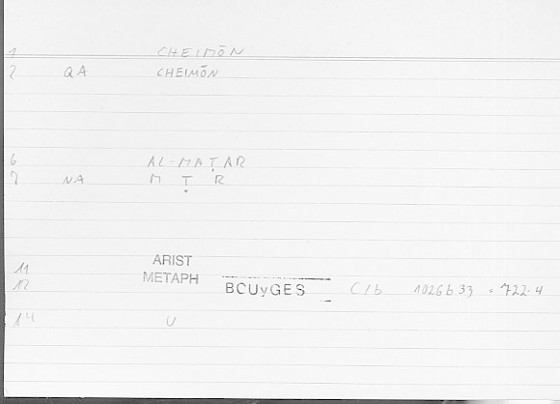 1 CHEIMŌN
2 QA CHEIMŌN
6 AL-MAṬAR
7 NA M Ṭ R
ARIST
11 METAPH
12 BOUyGES C/b 1026b33 = 722.4
14 U